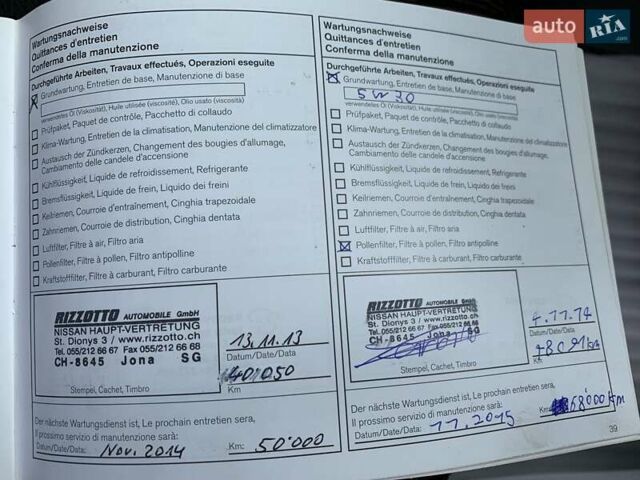 auto RIA.com
Wartungsnachweise
Quittances d'entretien
Conferma della manutenzione
Durchgeführte Arbeiten, Travaux effectués, Operazioni eseguite
Grundwartung, Entretien de base, Manutenzione di base
verwendetes Öl (Viskosität), Huile utilisée (viscosité), Olio usato (viscosità)
Prüfpaket, Paquet de contrôle, Pacchetto di collaudo
Klima-Wartung, Entretien de la climatisation, Manutenzione del climatizzatore
Austausch der Zündkerzen, Changement des bougies d'allumage,
Cambiamento delle candele d'accensione
Kühlflüssigkeit, Liquide de refroidissement, Refrigerante
Bremsflüssigkeit, Liquide de frein, Liquido dei freini
Keilriemen, Courroie d'entraînement, Cinghia trapezoidale
Zahnriemen, Courroie de distribution, Cinghia dentata
Luftfilter, Filtre à air, Filtro aria
Pollenfilter, Filtre à pollen, Filtro antipolline
Kraftstofffilter, Filtre à carburant, Filtro carburante
RIZZOTTO AUTOMOBILE GmbH
NISSAN HAUPT-VERTRETUNG
St. Dionys 3 / www.rizzotto.ch
Tel. 055/212 66 67 Fax 055/212 66 68
CH-8645 Jona SG
Stempel, Cachet, Timbro
13.11.13
Datum/Date/Data
Km
Der nächste Wartungsdienst ist, Le prochain entretien sera,
Il prossimo servizio di manutenzione sarà:
Datum/Date/Data: Nov. 2014 Km: 50'000
Wartungsnachweise
Quittances d'entretien
Conferma della manutenzione
Durchgeführte Arbeiten, Travaux effectués, Operazioni eseguite
Grundwartung, Entretien de base, Manutenzione di base
5W30
verwendetes Öl (Viskosität), Huile utilisée (viscosité), Olio usato (viscosità)
Prüfpaket, Paquet de contrôle, Pacchetto di collaudo
Klima-Wartung, Entretien de la climatisation, Manutenzione del climatizzatore
Austausch der Zündkerzen, Changement des bougies d'allumage,
Cambiamento delle candele d'accensione
Kühlflüssigkeit, Liquide de refroidissement, Refrigerante
Bremsflüssigkeit, Liquide de frein, Liquido dei freini
Keilriemen, Courroie d'entraînement, Cinghia trapezoidale
Zahnriemen, Courroie de distribution, Cinghia dentata
Luftfilter, Filtre à air, Filtro aria
Pollenfilter, Filtre à pollen, Filtro antipolline
Kraftstofffilter, Filtre à carburant, Filtro carburante
RIZZOTTO AUTOMOBILE GmbH
NISSAN HAUPT-VERTRETUNG
St. Dionys 3 / www.rizzotto.ch
Tel. 055/212 66 67 Fax 055/212 66 68
CH-8645 Jona SG
Stempel, Cachet, Timbro
4.11.14
Datum/Date/Data
Km
Der nächste Wartungsdienst ist, Le prochain entretien sera,
Il prossimo servizio di manutenzione sarà:
Datum/Date/Data: 11.2015 Km: 68'000 km
39